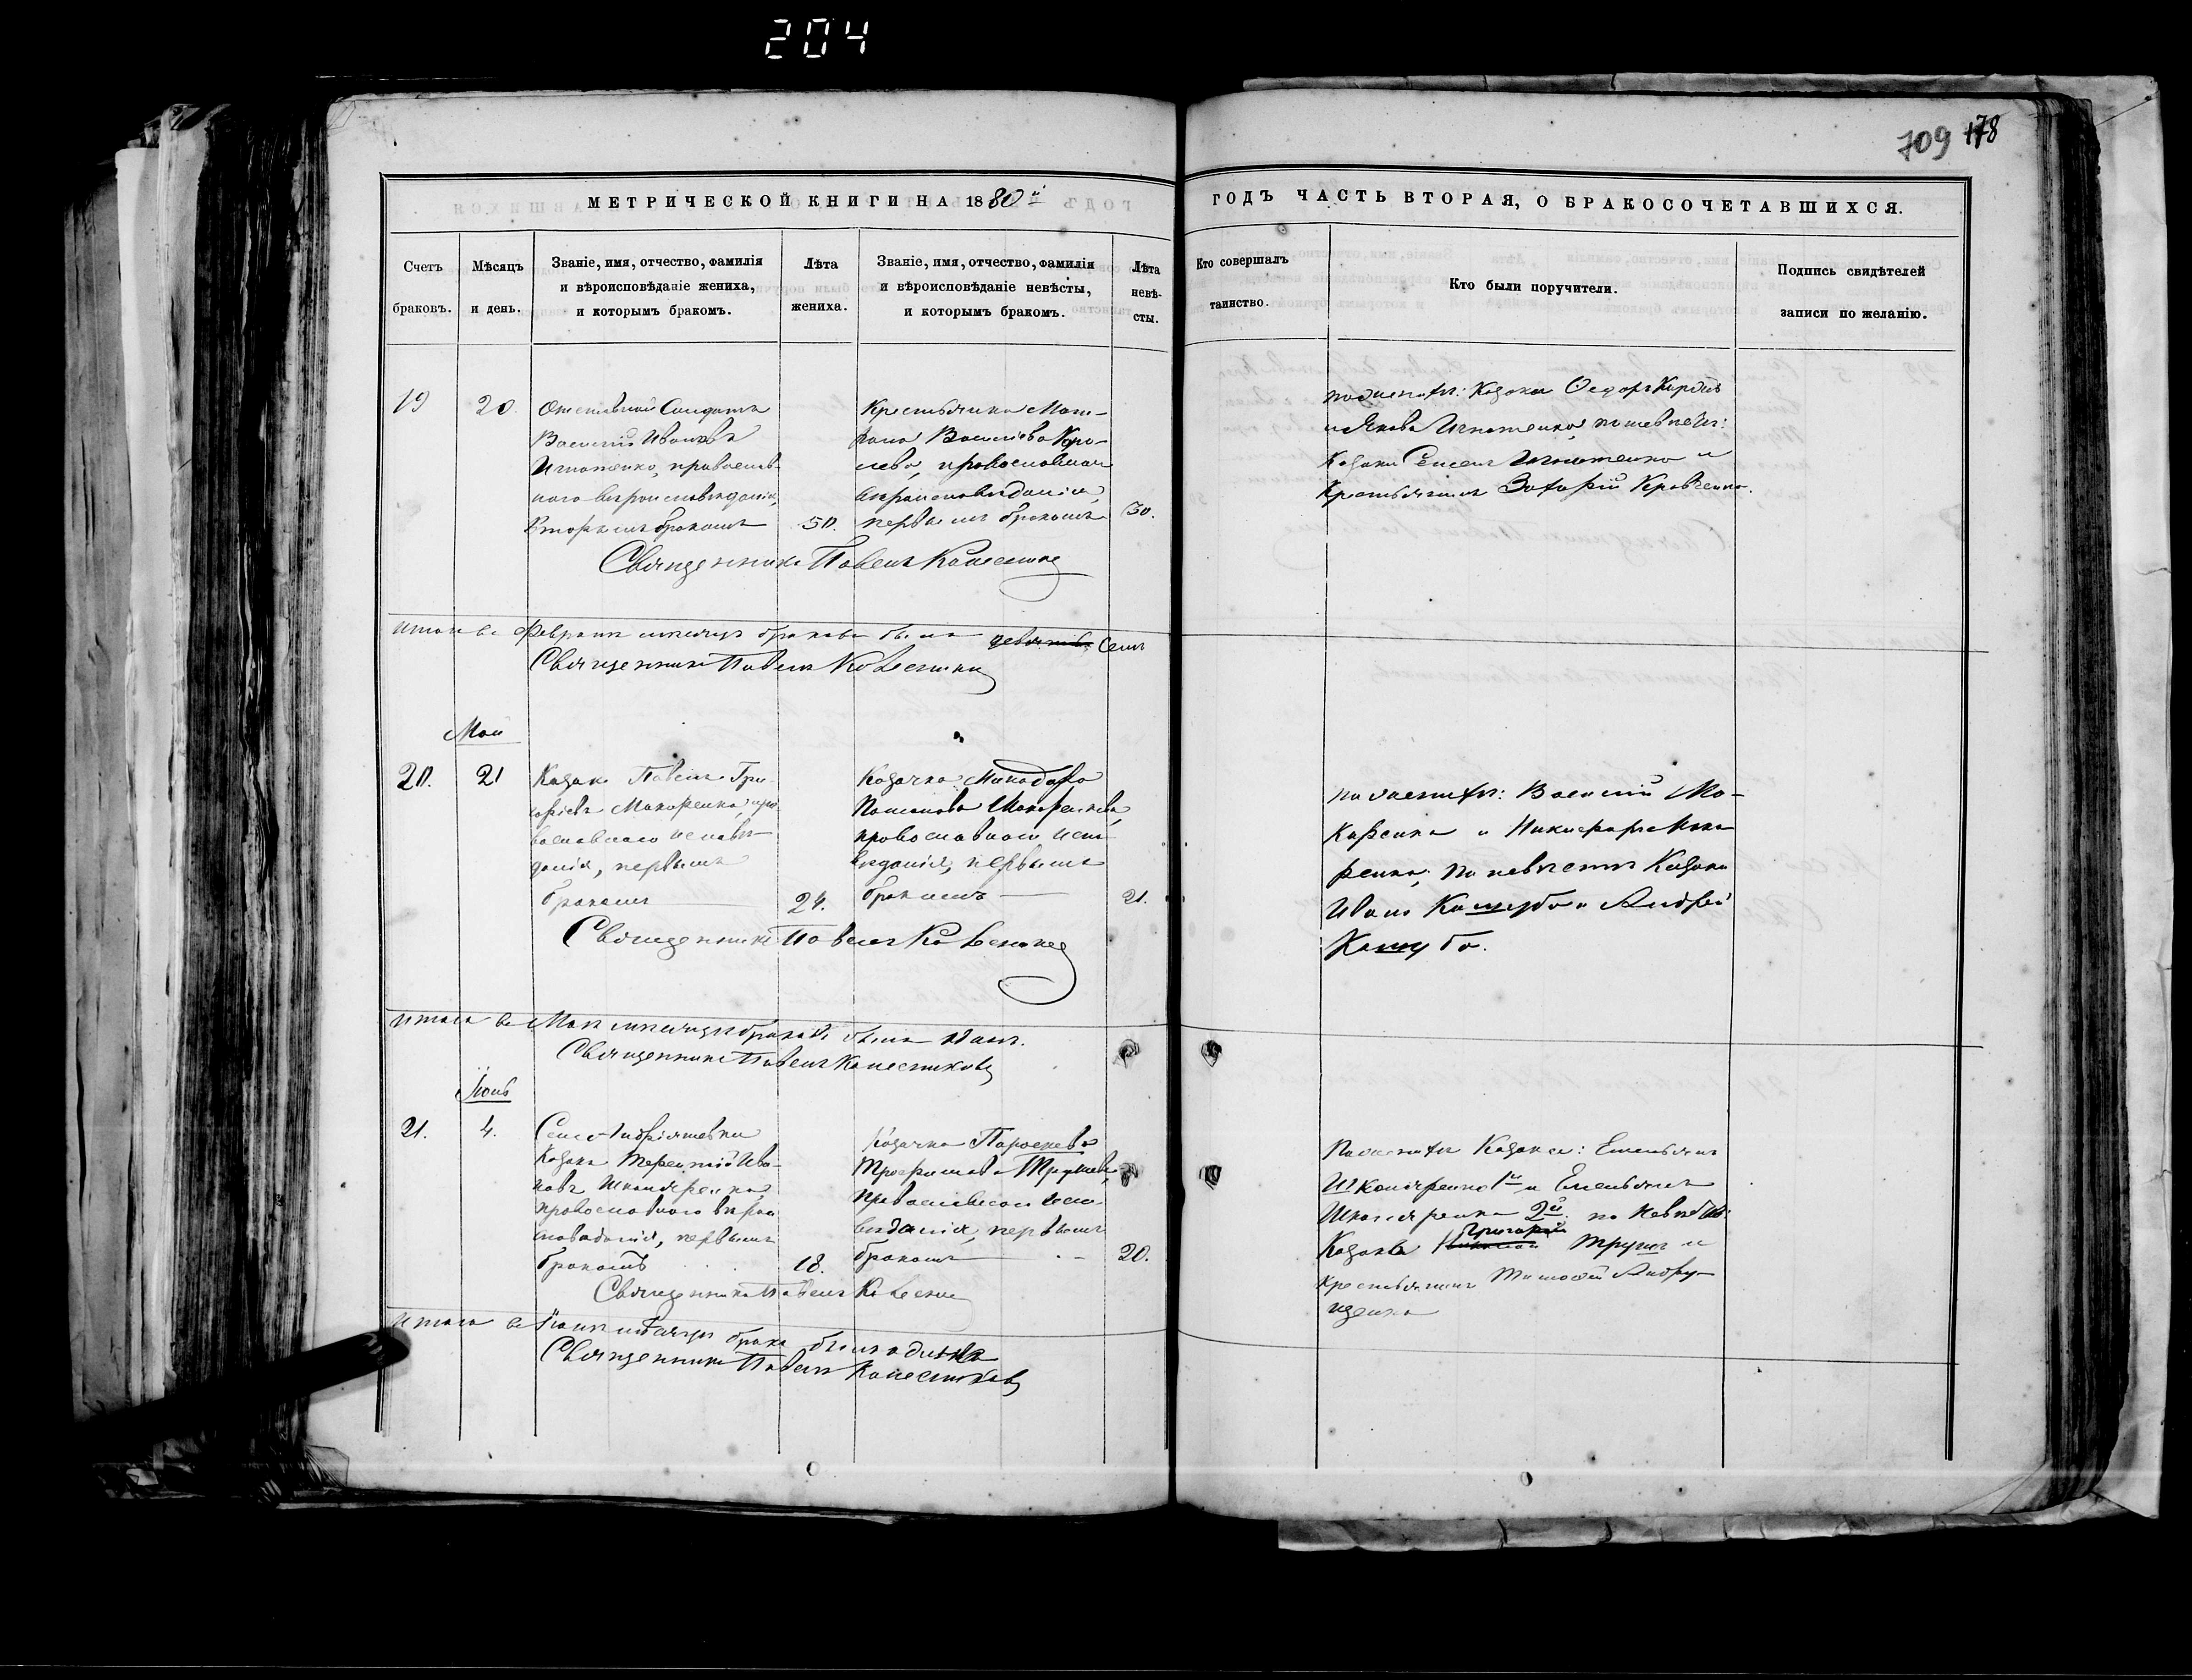 204
709 178
МЕТРИЧЕСКОЙ КНИГИ НА 1880й
ГОДЪ ЧАСТЬ ВТОРАЯ, О БРАКОСОЧЕТАВШИХСЯ.
Счетъ
браковъ.
Мѣсяцъ
и день.
Званіе, имя, отчество, фамилія
и вѣроисповѣданіе жениха,
и которымъ бракомъ.
Лѣта
жениха.
Званіе, имя, отчество, фамилія
и вѣроисповѣданіе невѣсты,
и которымъ бракомъ.
Лѣта
невѣ-
сты.
Кто совершалъ
таинство.
Кто были поручители.
Подпись свидѣтелей
записи по желанію.
19
20.
Отставной Солдатъ
Василій Ивановъ
Игнатенко, православ-
наго вѣроисповѣданія,
вторымъ бракомъ
50.
Крестьянка Мат-
рона Васильева
православнаго
вѣроисповѣданія,
первымъ бракомъ
30.
по женихѣ: Казаки Ѳедоръ
и Яковъ Игнатенко, по невѣстѣ:
Казаки Семенъ Игнатенко и
Крестьянинъ Захарій Кравченко.
Священникъ Павелъ
Итого въ Февралѣ мѣсяцѣ браковъ было девять семь
Священникъ Павелъ
Май
20.
21
Казакъ Павелъ Гри-
горіевъ Макаренко, пра
вославнаго исповѣ-
данія, первымъ
бракомъ
24.
Казачка
Макаренкова,
православнаго испо
вѣданія, первымъ
бракомъ
21.
по женихѣ: Василій Ма-
каренко и Никифоръ Мака
ренко; по невѣстѣ Казаки
Иванъ Кашуба и Андрей
Кашуба.
Священникъ Павелъ
Итого въ Маѣ мѣсяцѣ браковъ было одинъ.
Священникъ Павелъ Колесниковъ
Іюнь
21.
4.
Села Андріяшевки
Казакъ Терентій Ива-
новъ Шкондяренко,
православнаго вѣрои
сповѣданія, первымъ
бракомъ
18.
Казачка Параскева
Трофимова
православнаго испо-
вѣданія, первымъ
бракомъ
20.
По женихѣ Казаки: Емельянъ
1й и Емельянъ
2й. по невѣстѣ:
Казакъ Григорій и
крестьянинъ Тимофей Андру-
щенко
Священникъ Павелъ
Итого въ Іюнѣ мѣсяцѣ брака былъ одинъ
Священникъ Павелъ Колесниковъ